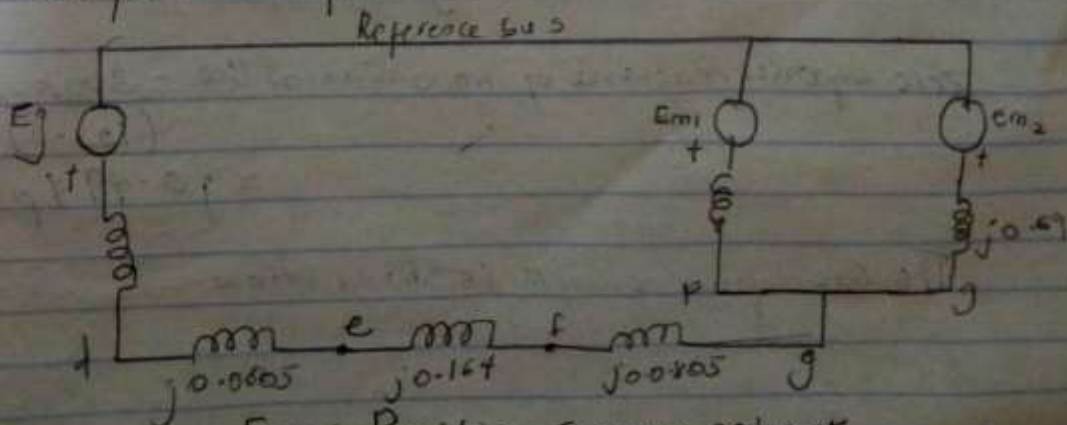 Reference bus
Eg
Em1
em2
+
+
+
j0.69
p
g
d
e
f
g
j0.0605
j0.164
j0.0805